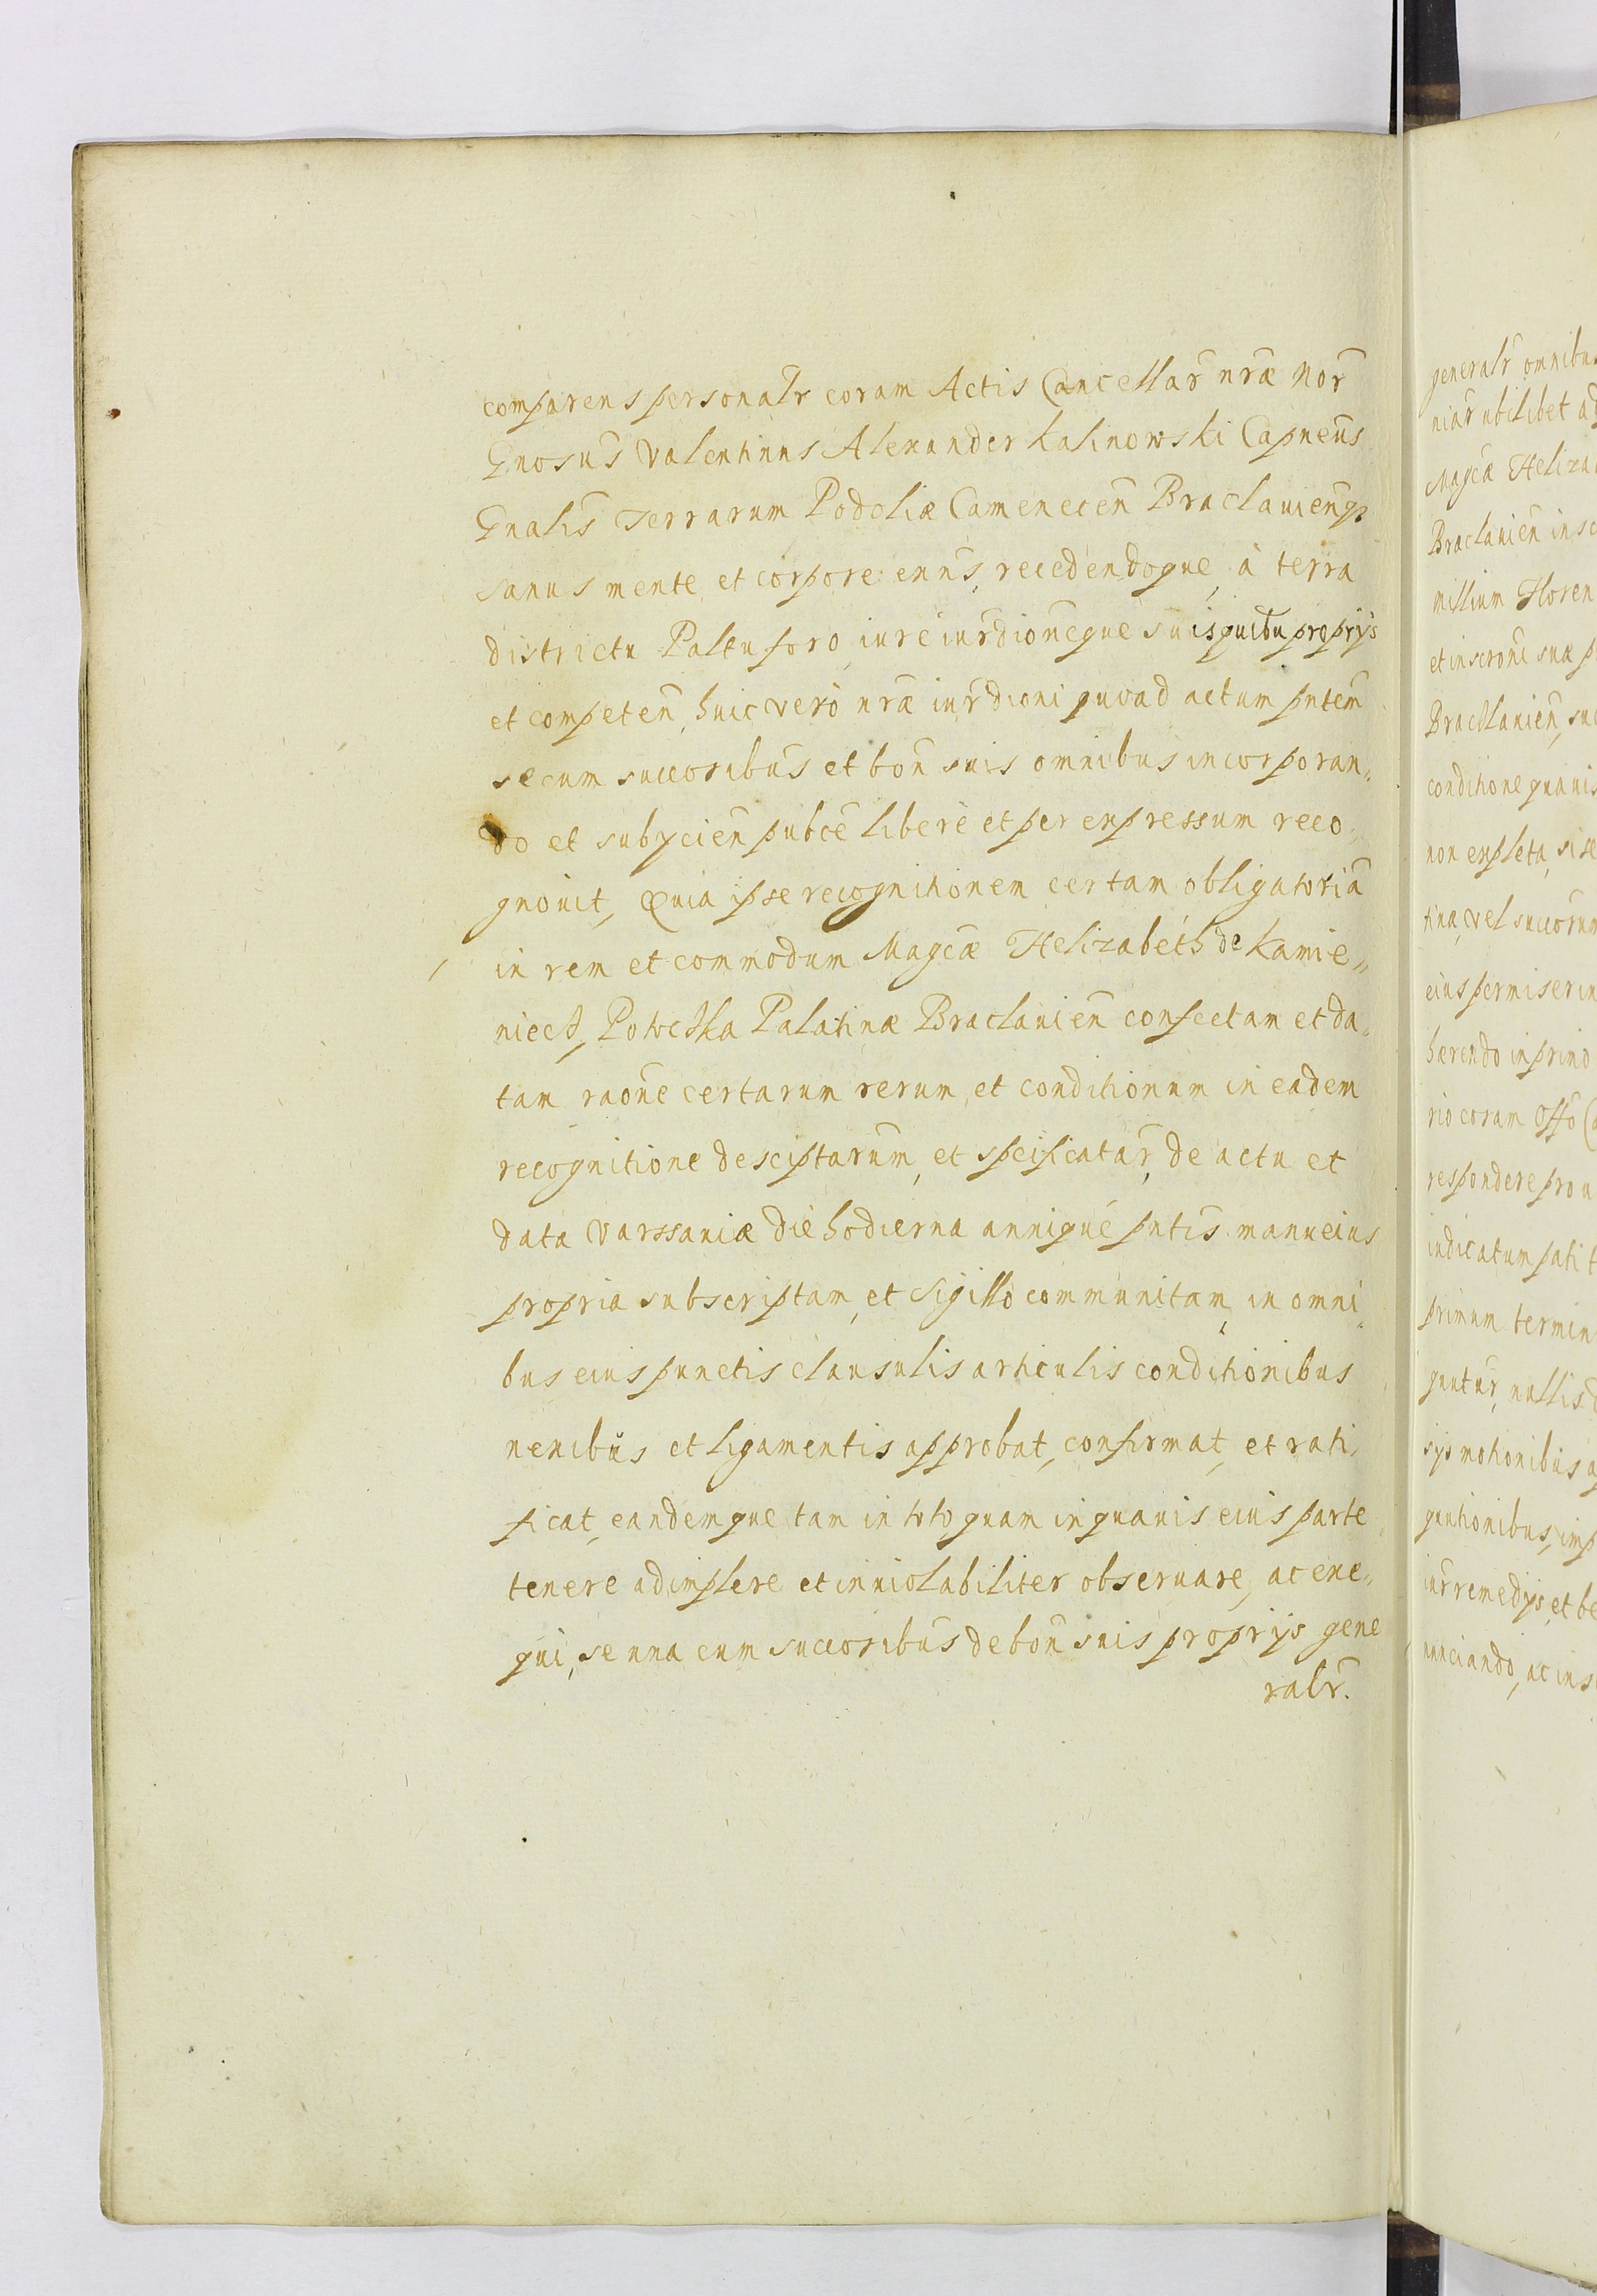 comparens personalr coram Actis Cancellar̃ nr̃æ Nor̃
Gnosus̃ Valentinus Alexander Kalinowski Capneus̃
Gnalis̃ Terrarum Podoliæ Camenecen̄ Braclauien̄
sanus mente et corpore enn̄s, recedendoque à terra
districtu Paltu foro iure iur̃dioneque suis quibu proprijs
et competen̄, huic verò nr̃æ iur̃dioni quoad actum pntem̄
secum succoribus̃ et bon̄ suis omnibus incorporan„
do et subycien̄ pubcē liberè et per expressum reco„
gnouit, Quia ipse recognitionem certam obligatoriā
in rem et commodum Magcæ Helizabeth de Kamie„
niecz, Potocka Palatinæ Braclauien̄ confectam et da„
tam raonē certarum rerum, et conditionum in eadem
recognitione desciptarum̄, et speificatar̃, de actu et
data Varssauiæ die hodierna annique pntis̃ manu eius
propria subscriptam, et Sigillo communitam, in omni„
bus eius punctis clausulis articulis conditionibus
nexibus et ligamentis approbat, confirmat, et rati„
ficat, eandemque tam in toto quam in quauis eius parte
tenere adimplere et inuiolabiliter obseruare, ac exe„
qui, se una cum succoribus̃ de bon̄ suis proprijs gene
ralr̃.
generalr̃ omnibu
niar̃ ubilibet ad
Magcæ Heliza
Braclauien̄ insc
millium Floren
et inscronē suæ p
Braclauien̄, suc
conditione quauis
non expleta, si se
tina, vel succorum
eius permiserin
hærendo in primo
rio coram Offo
respondere pro u
iudicatum pati t
primum termin
guntur, nullis
sijs motionibus a
guntionibus, imp
iur̃ remedijs, et be
nunciando, ac ins